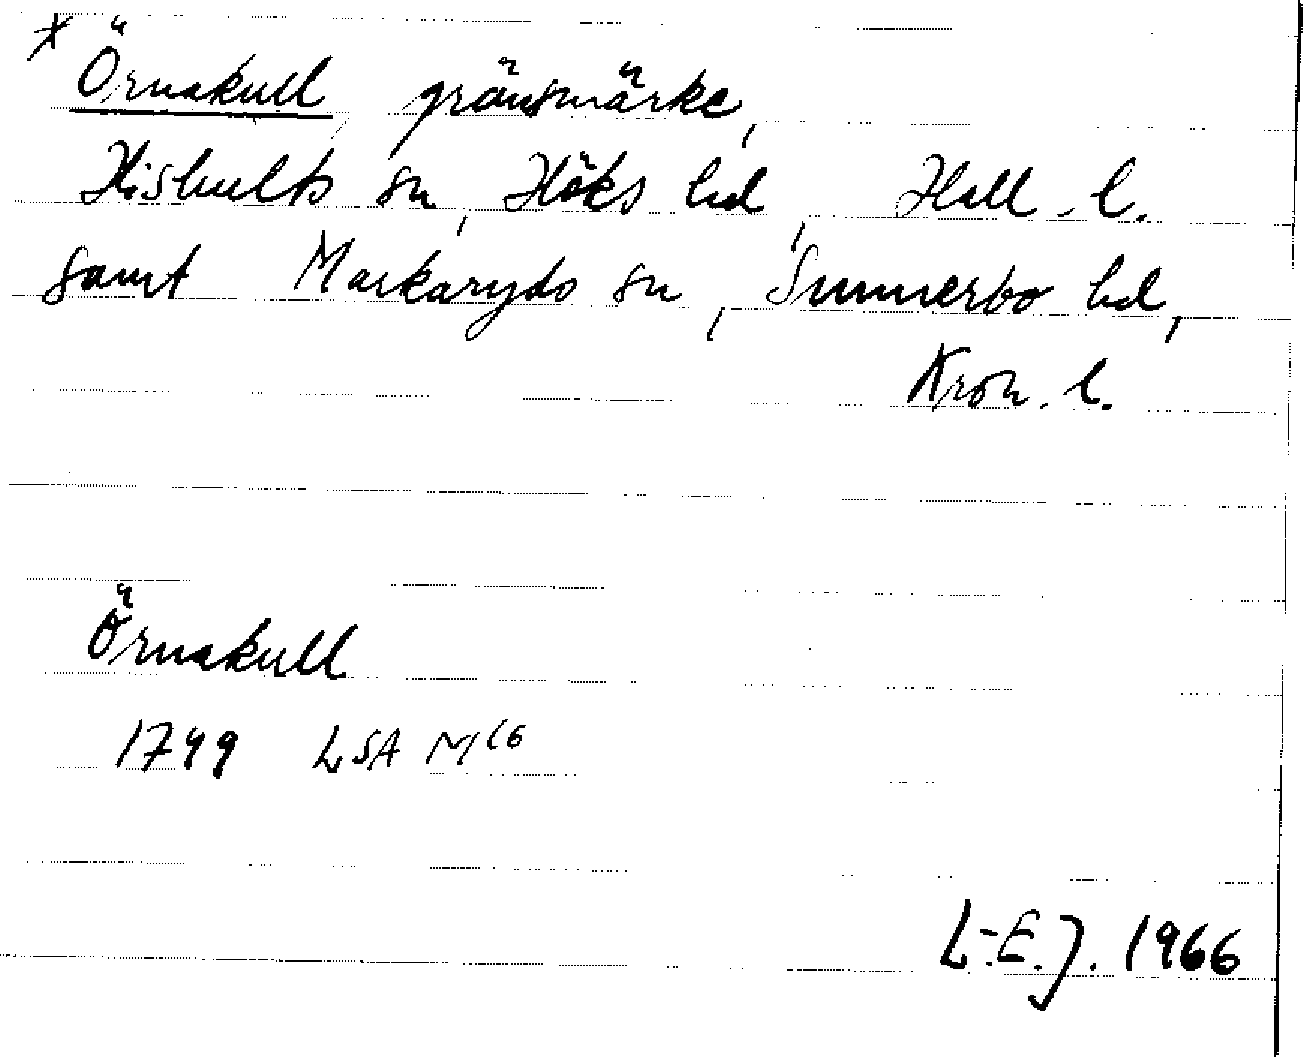 * Örnakull gränsmärke,
Hishults sn, Höks hd, Hall. l.
samt Markaryds sn, Sunnerbo hd,
Kron. l.
Örnakull
1749 LSA M16
L-E.J. 1966